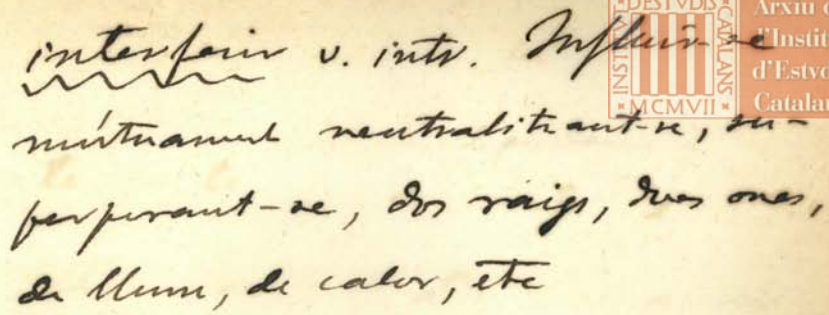 interferir v. intr. Influir-se
mútuament neutralitzant-se, su-
perposant-se, dos raigs, dues ones,
de llum, de calor, etc
INSTITUT D'ESTVDIS CATALANS
MCMVII
Arxiu d
l'Instit
d'Estvd
Catalan